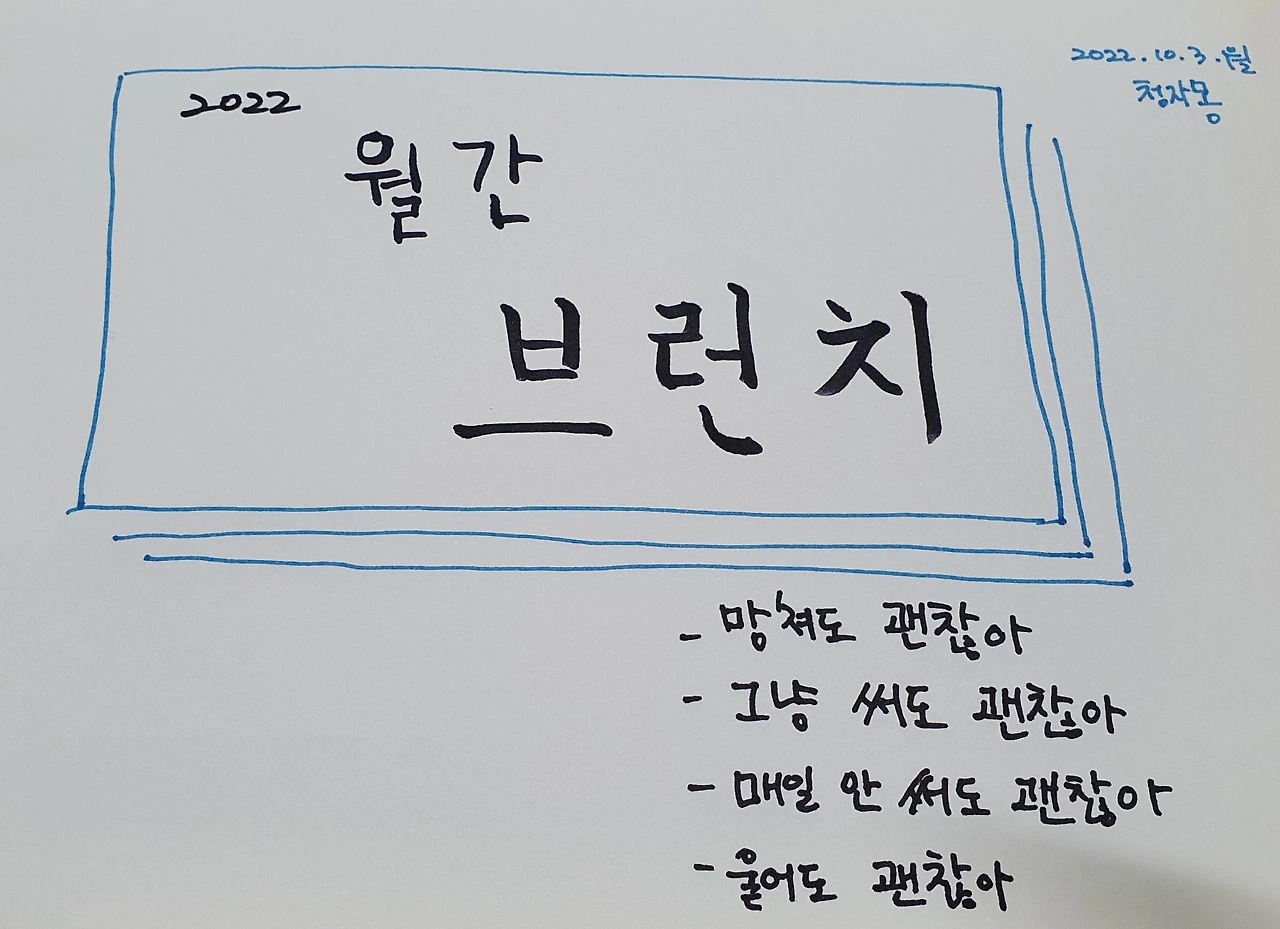 2022.10.3.월
청자몽
2022
월간
브런치
- 망쳐도 괜찮아
- 그냥 써도 괜찮아
- 매일 안 써도 괜찮아
- 울어도 괜찮아